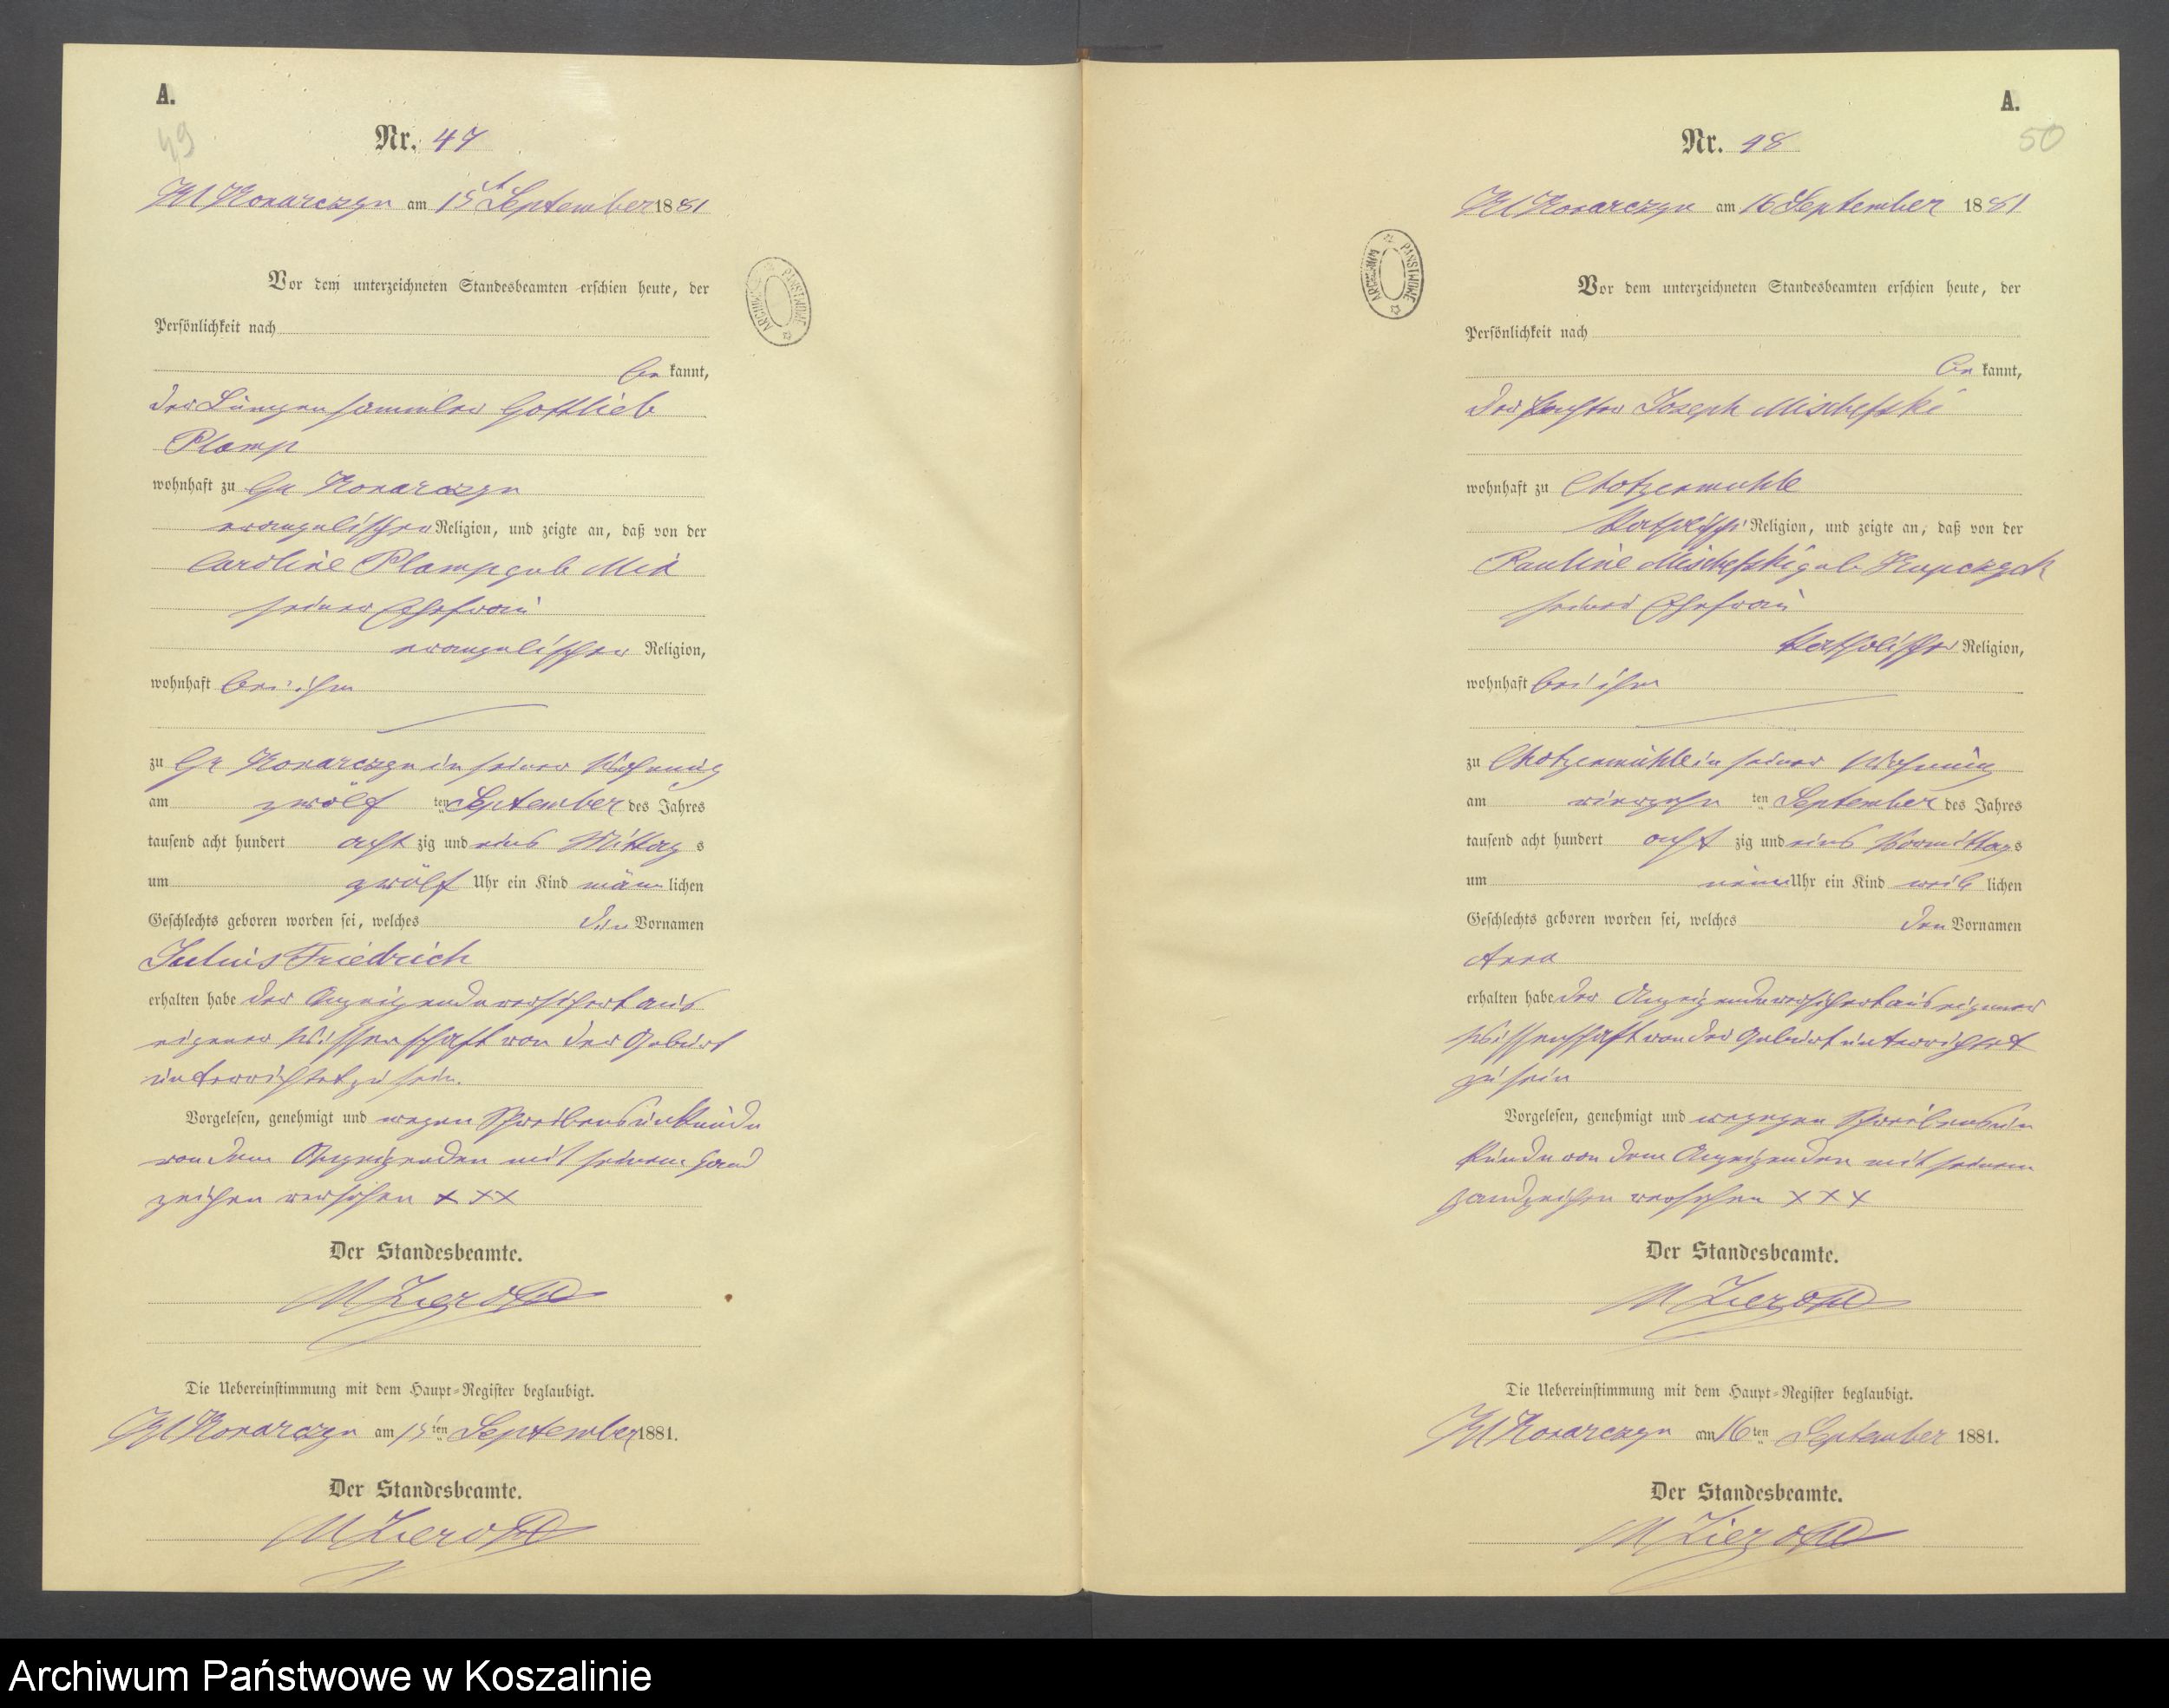 A.
49
Nr. 47
Kl Konarczyn am 15t September 1881
Vor dem unterzeichneten Standesbeamten erschien heute, der
Persönlichkeit nach
be kannt,
der Lumpensammler Gottlieb
Plamp
wohnhaft zu Gr Konarczyn
evangelischer Religion, und zeigte an, daß von der
Caroline Plamp geb
seiner Ehefrau
evangelischer Religion,
wohnhaft bei ihm
zu Gr Konarczyn in seiner Wohnung
am zwölf ten September des Jahres
tausend acht hundert acht zig und eins Mittag s
um zwölf Uhr ein Kind männ lichen
Geschlechts geboren worden sei, welches den Vornamen
Julius Friedrich
erhalten habe der Anzeigende versichert aus
eigener Wissenschaft von der Geburt
unterrichtet zu sein.
Vorgelesen, genehmigt und wegen Schreibensunkunde
von dem Anzeigenden mit seinem Hand
zeichen versehen XXX
Der Standesbeamte.
M
Die Uebereinstimmung mit dem Haupt-Register beglaubigt.
Kl Konarczyn am 15 ten September 1881.
Der Standesbeamte.
M
A.
50
Nr. 48
Kl Konarczyn am 16 September 1881
Vor dem unterzeichneten Standesbeamten erschien heute, der
Persönlichkeit nach
be kannt,
der Pächter Joseph Mischefski
wohnhaft zu Chotzenmühle
katholischer Religion, und zeigte an, daß von der
Pauline Mischefski geb
seiner Ehefrau
katholischer Religion,
wohnhaft bei ihm
zu Chotzenmühle in seiner Wohnung
am vierzehn ten September des Jahres
tausend acht hundert acht zig und eins Vormittags
um neun Uhr ein Kind weib lichen
Geschlechts geboren worden sei, welches den Vornamen
Anna
erhalten habe der Anzeigende versichert aus eigener
Wissenschaft von der Geburt unterrichtet
zu sein
Vorgelesen, genehmigt und wegen Schreibensun
kunde von dem Anzeigenden mit seinem
Handzeichen versehen XXX
Der Standesbeamte.
M
Die Uebereinstimmung mit dem Haupt-Register beglaubigt.
Kl Konarczyn am 16 ten September 1881.
Der Standesbeamte.
M
ARCHIWUM PAŃSTWOWE
ARCHIWUM PAŃSTWOWE
Archiwum Państwowe w Koszalinie